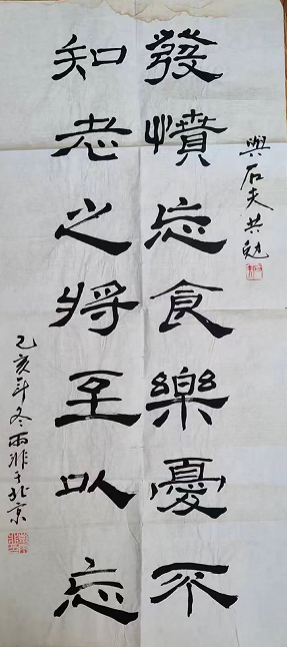 與石夫共勉
發憤忘食樂憂不
知老之將至以忘
乙亥年冬雨非于北京